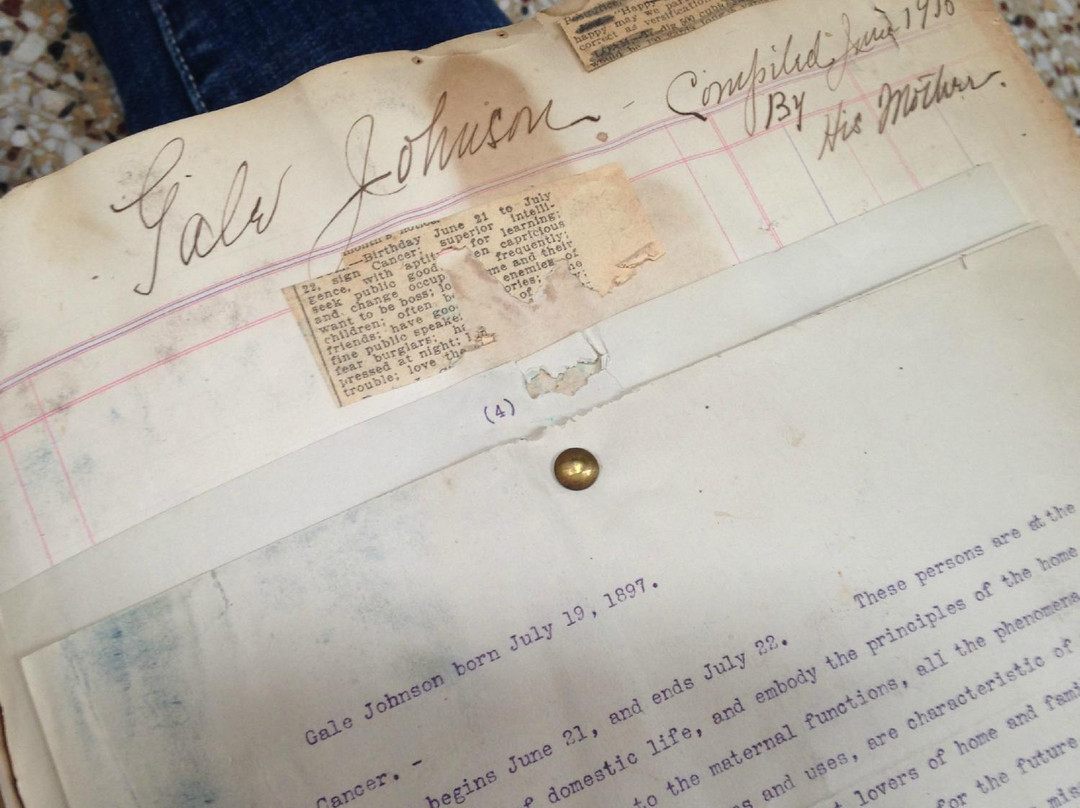 Happy
happy may we par
correct as versification
Gale Johnson - Compiled June 19
By
His Mother.
Birthday June 21 to July
22, sign Cancer; superior intelli-
gence, with aptit for learning;
seek public good en capricious
and change occup frequently;
want to be boss; lo me and their
children; often b enemies of
friends; have goo ories;
fine public speake of
fear burglars; h
pressed at night;
trouble; love the
(4)
Gale Johnson born July 19, 1897.
These persons are at the
Cancer. -
begins June 21, and ends July 22.
f domestic life, and embody the principles of the home
to the maternal functions, all the phenomena
s and uses, are characteristic of
t lovers of home and fami
for the future
mis